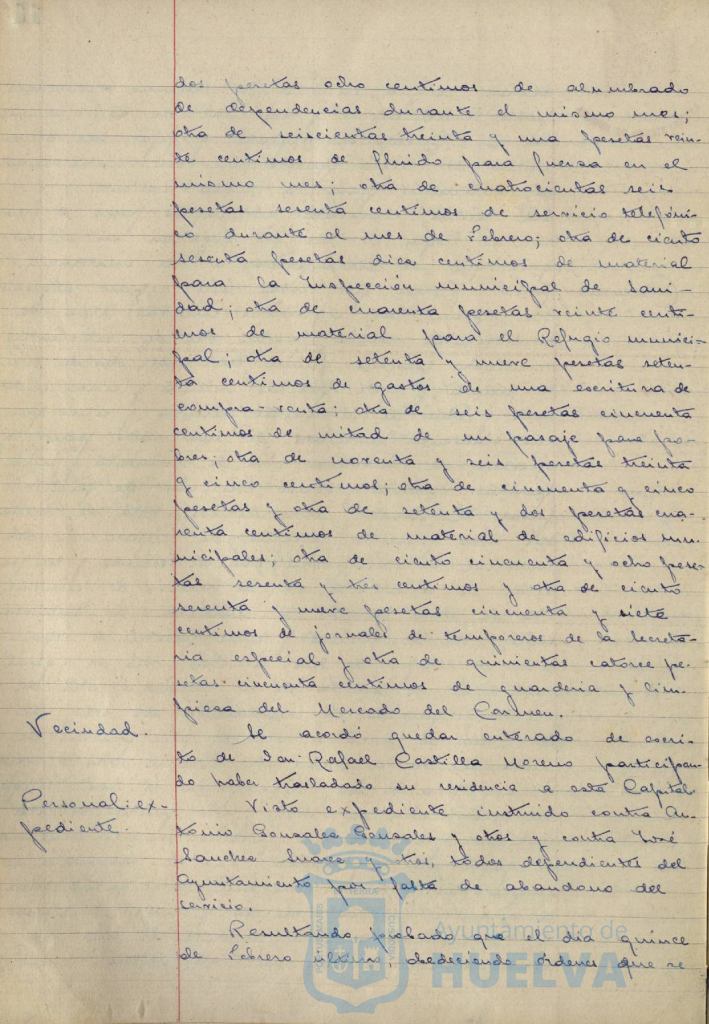 dos pesetas ocho centimos de alumbrado
de dependencias durante el mismo mes;
otra de seiscientas treinta y una pesetas vein-
te centimos de fluido para fuerza en el
mismo mes; otra de cuatrocientas seis
pesetas sesenta centimos de servicio telefóni-
co durante el mes de Febrero; otra de ciento
sesenta pesetas diez centimos de material
para la Inspección municipal de Sani-
dad; otra de cuarenta pesetas veinte centi-
mos de material para el Refugio munici-
pal; otra de setenta y nueve pesetas seten-
ta centimos de gastos de una escritura de
compra-venta; otra de seis pesetas cincuenta
centimos de mitad de un pasaje para po-
bres; otra de noventa y seis pesetas treinta
y cinco centimos; otra de cincuenta y cinco
pesetas y otra de setenta y dos pesetas cua-
renta centimos de material de edificios mu-
nicipales; otra de ciento cincuenta y ocho pese-
tas sesenta y tres centimos y otra de ciento
sesenta y nueve pesetas cincuenta y siete
centimos de jornales de temporeros de la Secreta-
ria especial y otra de quinientas catorce pe-
setas cincuenta centimos de guarderia y lim-
pieza del Mercado del Carmen.
Vecindad. Se acordó quedar enterado de escri-
to de Don Rafael Castilla Moreno participan-
do haber trasladado su residencia a esta Capital.
Personal: ex- Visto expediente instruido contra An-
pediente. tonio Gonzalez Gonzalez y otros y contra José
Sanchez Suarez y otros, todos dependientes del
Ayuntamiento por falta de abandono del
servicio.
Resultando probado que el dia quince
de Febrero último, obedeciendo órdenes que se
Ayuntamiento de
HUELVA